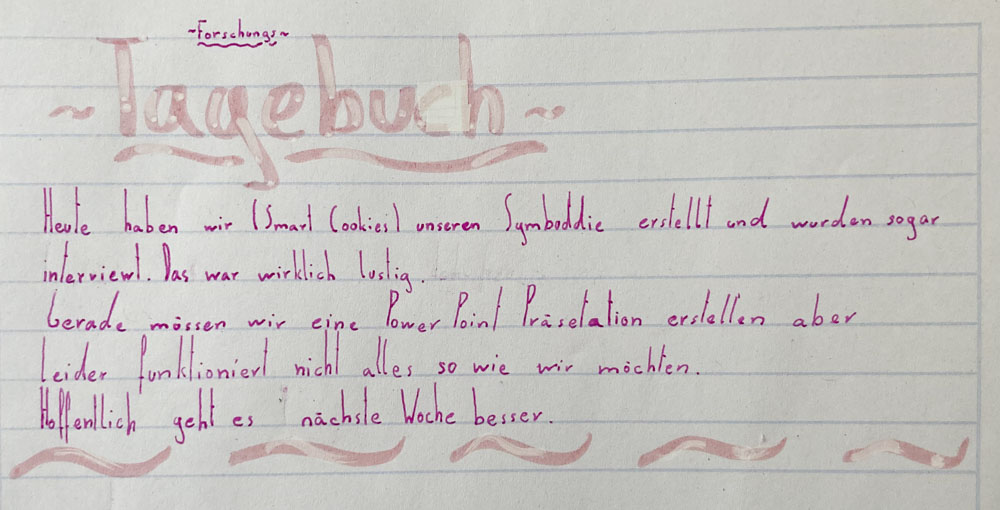 ~Forschungs~
~Tagebuch~
Heute haben wir (Smart Cookies) unseren Symboddie erstellt und wurden sogar
interviewt. Das war wirklich lustig.
Gerade müssen wir eine Power Point Präsetation erstellen aber
leider funktioniert nicht alles so wie wir möchten.
Hoffentlich geht es nächste Woche besser.